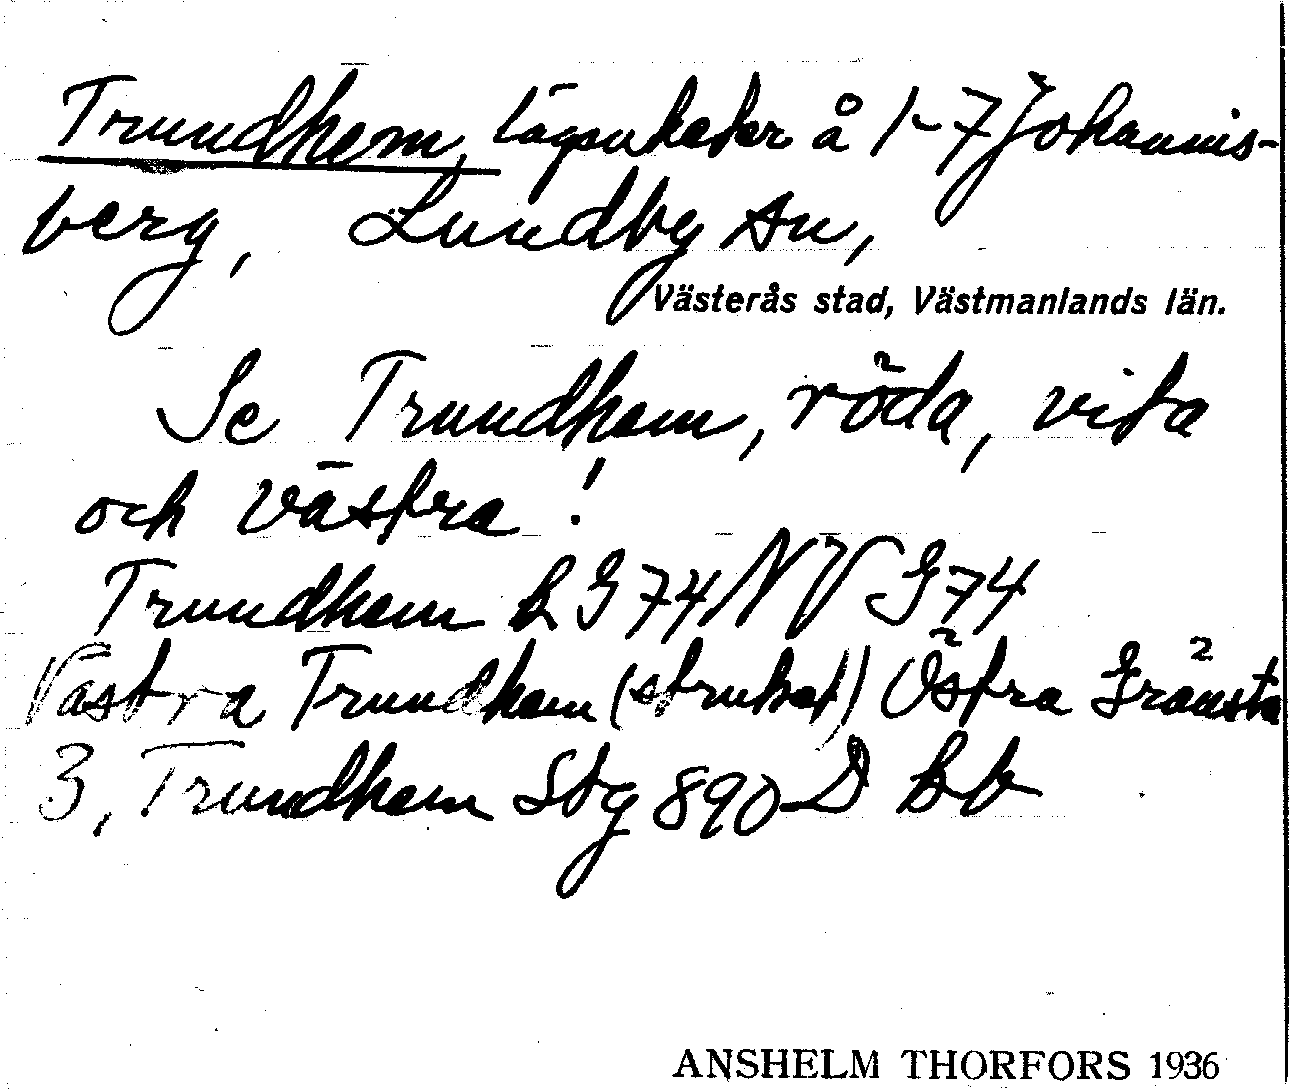 Trundhem, lägenheter å 1-7 Johannis-
berg, Lundby sn,
Västerås stad, Västmanlands län.
Se Trundhem, röda, vita
och västra!
Trundhem L G 74 NV G 74
Västra Trundhem (struket) Östra Gränsta
3, Trundhem Stg 890 D
ANSHELM THORFORS 1936